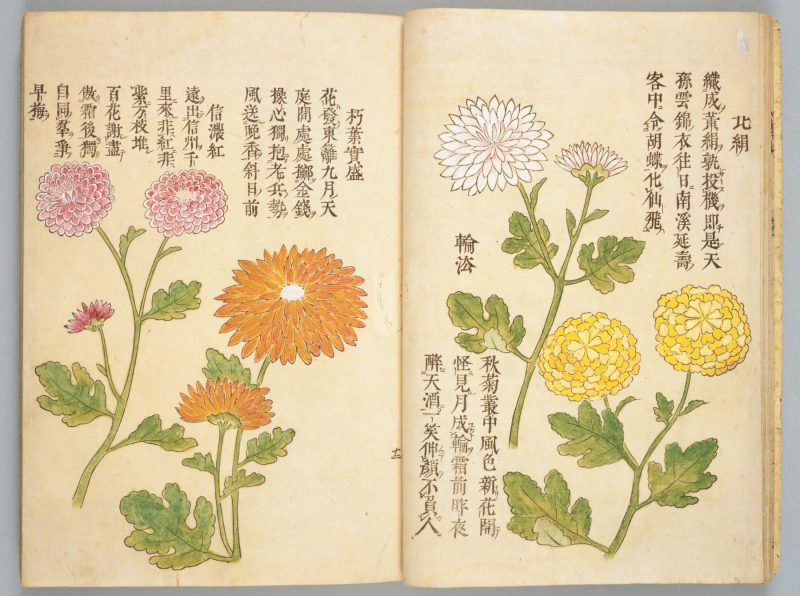 北絹
織成黄絹孰投機即是天
孫雲錦衣往日南溪延壽
客中令胡蝶化仙飛
輪
秋菊叢中風色新花開
怪見月成輪霜前昨夜
醉天一笑伸顔不負人
朽葉實盛
花發東籬九月天
庭間處處擲金錢
操心獨抱老兵勢
風送晩香斜日前
信濃紅
遠出信州千
里來非紅非
紫万枝堆
百花謝盡
傲霜後獨
自同羣
早梅